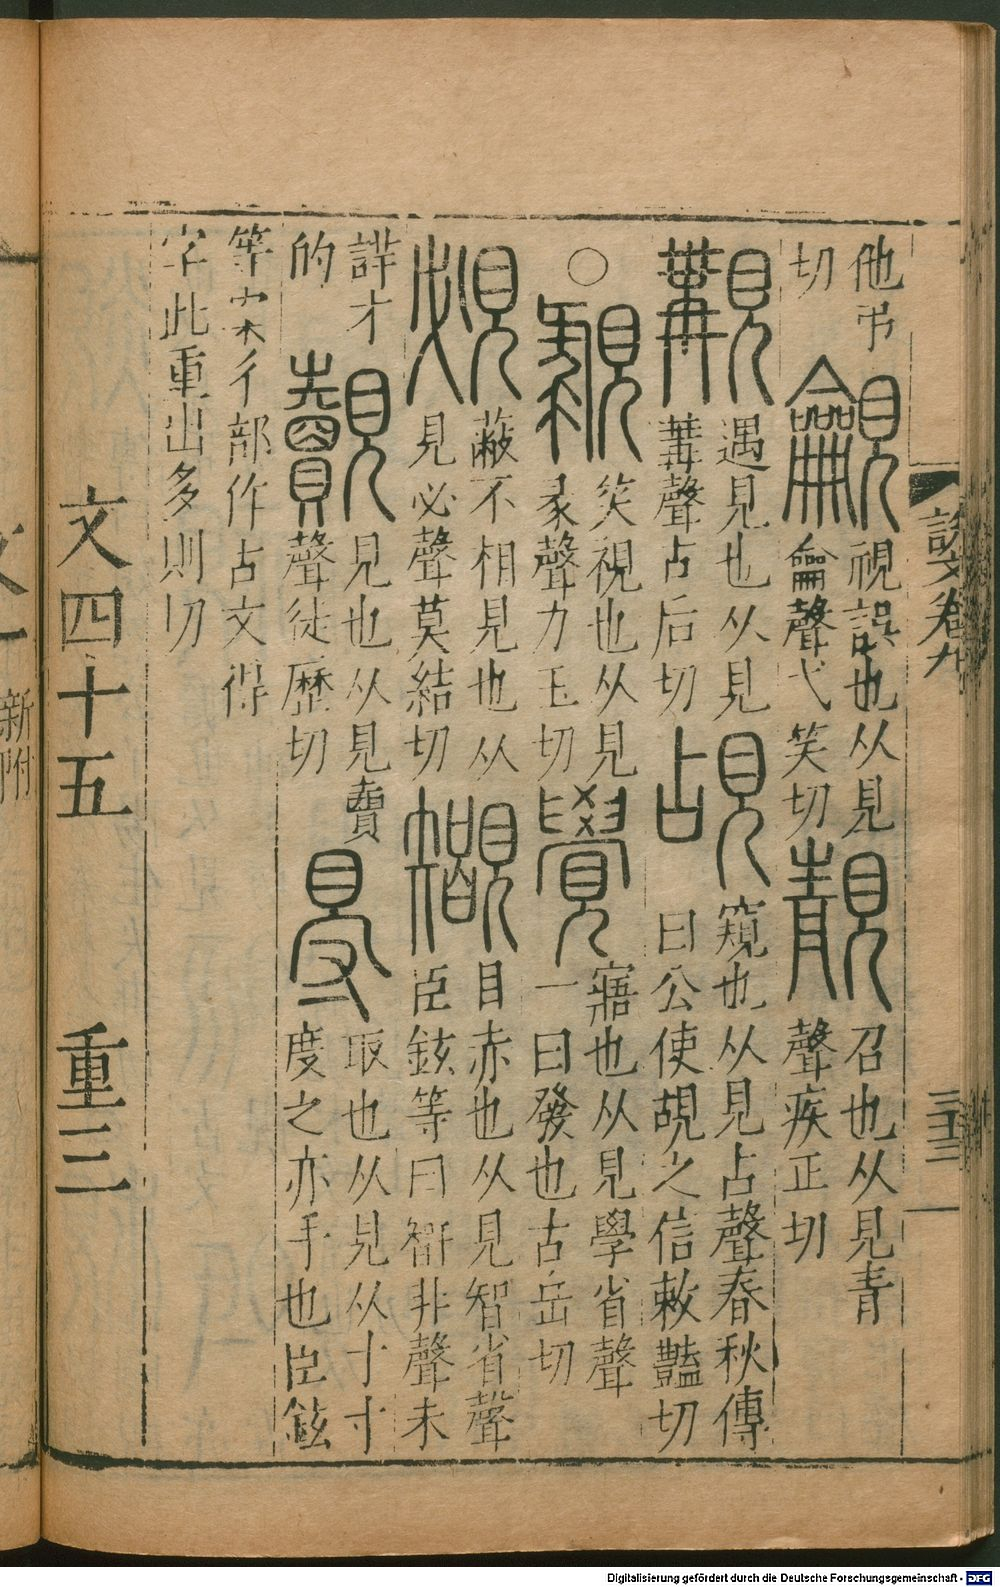 說文卷九
三十三
他弔切 䚇 視誤也从見龠聲弋笑切 靚 召也从見青聲疾正切
覯 遇見也从見冓聲古后切 覘 窺也从見占聲春秋傳曰公使覘之信敕豔切
○䚄 笑視也从見彔聲力玉切 覺 寤也从見學省聲一曰發也古岳切
覕 蔽不相見也从見必聲莫結切 䚉 目赤也从見智省聲臣鉉等曰智非聲未
詳才的 覿 見也从見賣聲徒歷切 㝵 取也从見从寸寸度之亦手也臣鉉
等案彳部作古文得
字此重出多則切
文四十五 重三
新附